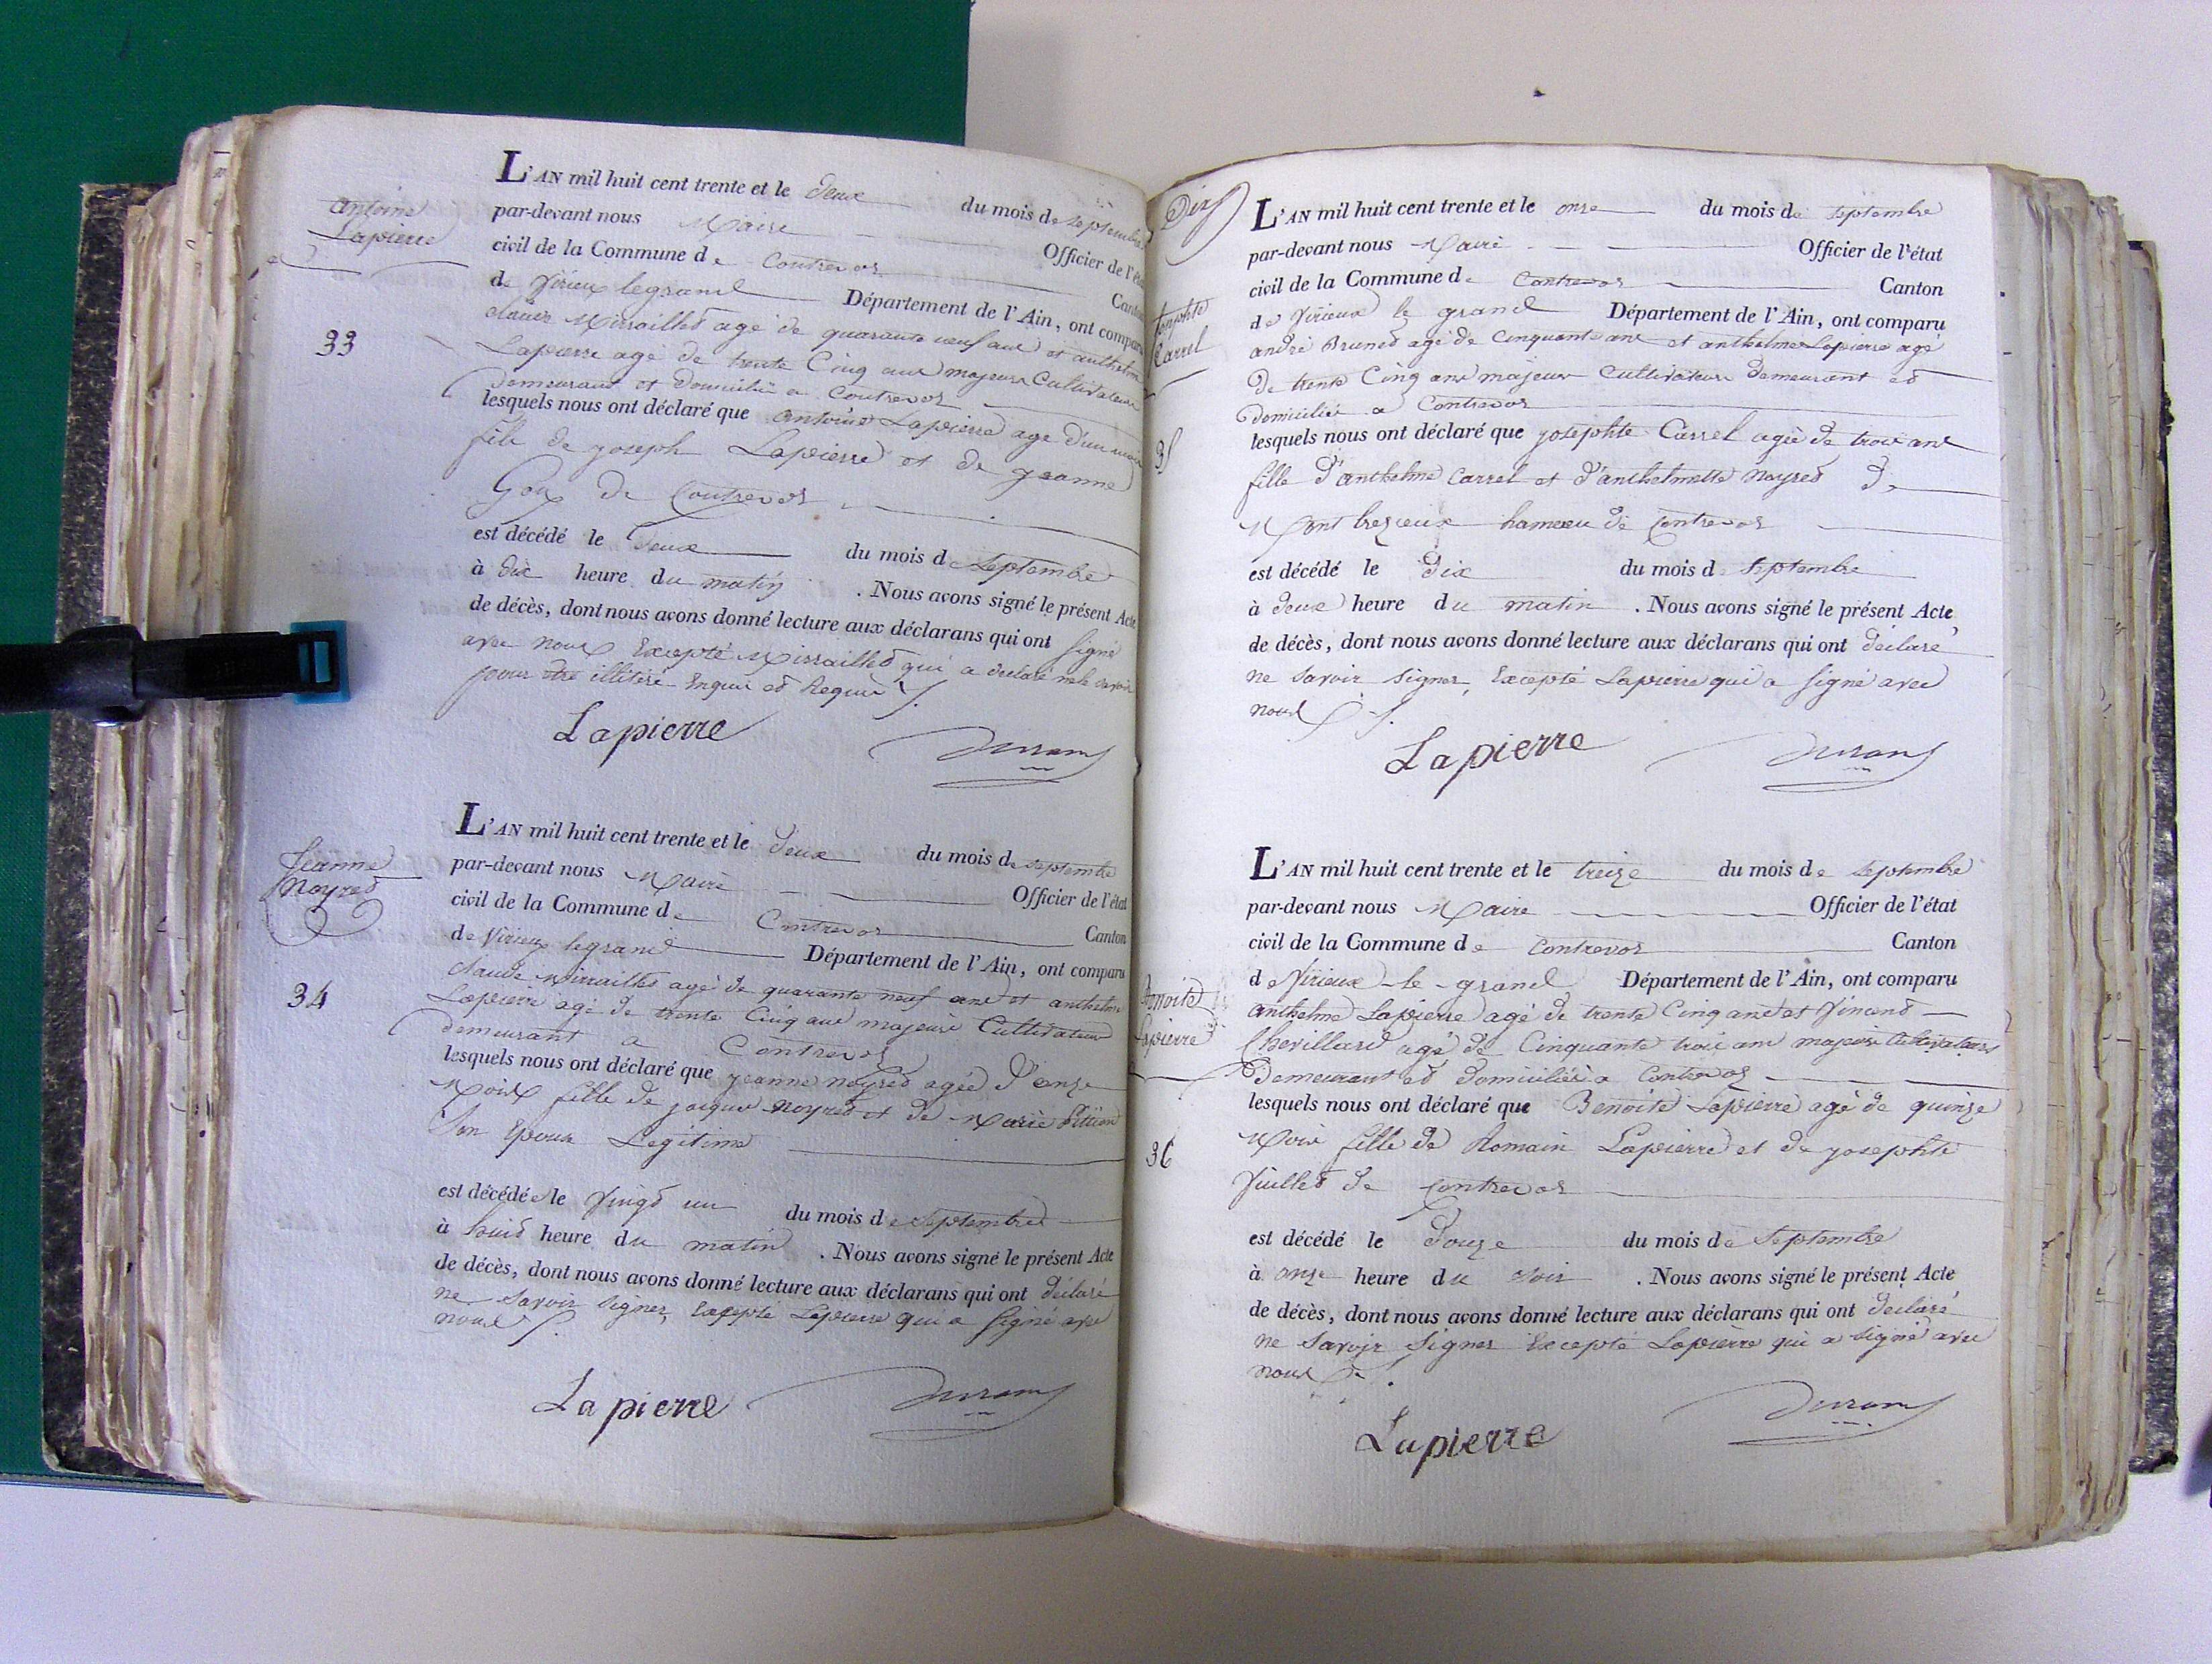 Antoine
Lapierre
33
L'AN mil huit cent trente et le deux du mois de septembre
par-devant nous Maire Officier de l'état
civil de la Commune de Contrevoz Canton
de Virieux legrand Département de l'Ain, ont comparu
claude Mirraillet agé de quarante neuf ans et anthelme
Lapierre agé de trente Cinq ans majeurs Cultivateurs
demeurant et domicilié a Contrevoz
lesquels nous ont déclaré que antoine Lapierre agé d'un mois
fils de joseph Lapierre et de jeanne
Goux de Contrevoz
est décédé le deux du mois de septembre
à dix heure du matin . Nous avons signé le présent Acte
de décès, dont nous avons donné lecture aux déclarans qui ont signé
avec nous Excepté Mirraillet qui a déclaré ne le savoir
pour etre illitéré Enquis et Requis
Lapierre Durand
Jeanne
Noyret
34
L'AN mil huit cent trente et le deux du mois de septembre
par-devant nous Maire Officier de l'état
civil de la Commune de Contrevoz Canton
de Virieux legrand Département de l'Ain, ont comparu
claude Mirraillet agé de quarante neuf ans et anthelme
Lapierre agé de trente Cinq ans majeurs Cultivateurs
demeurant a Contrevoz
lesquels nous ont déclaré que jeanne noyret agée d'onze
Mois fille de jacques noyret et de Marie
Son Epouse Legitime
est décédée le Vingt un du mois de septembre
à huit heure du matin . Nous avons signé le présent Acte
de décès, dont nous avons donné lecture aux déclarans qui ont déclaré
ne savoir signer, Excepté Lapierre qui a signé avec
nous
Lapierre Durand
Dix
Josephte
Carrel
35
L'AN mil huit cent trente et le onze du mois de septembre
par-devant nous Maire Officier de l'état
civil de la Commune de Contrevoz Canton
de Virieux le grand Département de l'Ain, ont comparu
andré Brunet agé de Cinquante ans et anthelme Lapierre agé
de trente Cinq ans majeurs Cultivateurs demeurant et
domicilié a Contrevoz
lesquels nous ont déclaré que josephte Carrel agée de trois ans
fille d'anthelme Carrel et d'anthelmette noyret d
Montbrezieux hameau de Contrevoz
est décédé le Dix du mois de septembre
à deux heure du matin . Nous avons signé le présent Acte
de décès, dont nous avons donné lecture aux déclarans qui ont déclaré
ne Savoir Signer, Excepté Lapierre qui a signé avec
nous
Lapierre Durand
Benoite
Lapierre
36
L'AN mil huit cent trente et le treize du mois de septembre
par-devant nous Maire Officier de l'état
civil de la Commune de Contrevoz Canton
de Virieux-le-grand Département de l'Ain, ont comparu
anthelme Lapierre agé de trente Cinq ans et Vincent
Chevillard agé de Cinquante trois ans majeurs Cultivateurs
demeurant et domiciliés a Contrevoz
lesquels nous ont déclaré que Benoite Lapierre agé de quinze
Mois fille de Romain Lapierre et de josephte
Vuillet de Contrevoz
est décédé le Douze du mois de septembre
à onze heure du soir . Nous avons signé le présent Acte
de décès, dont nous avons donné lecture aux déclarans qui ont déclaré
ne Savoir Signer Excepté Lapierre qui a signé avec
nous
Lapierre Durand